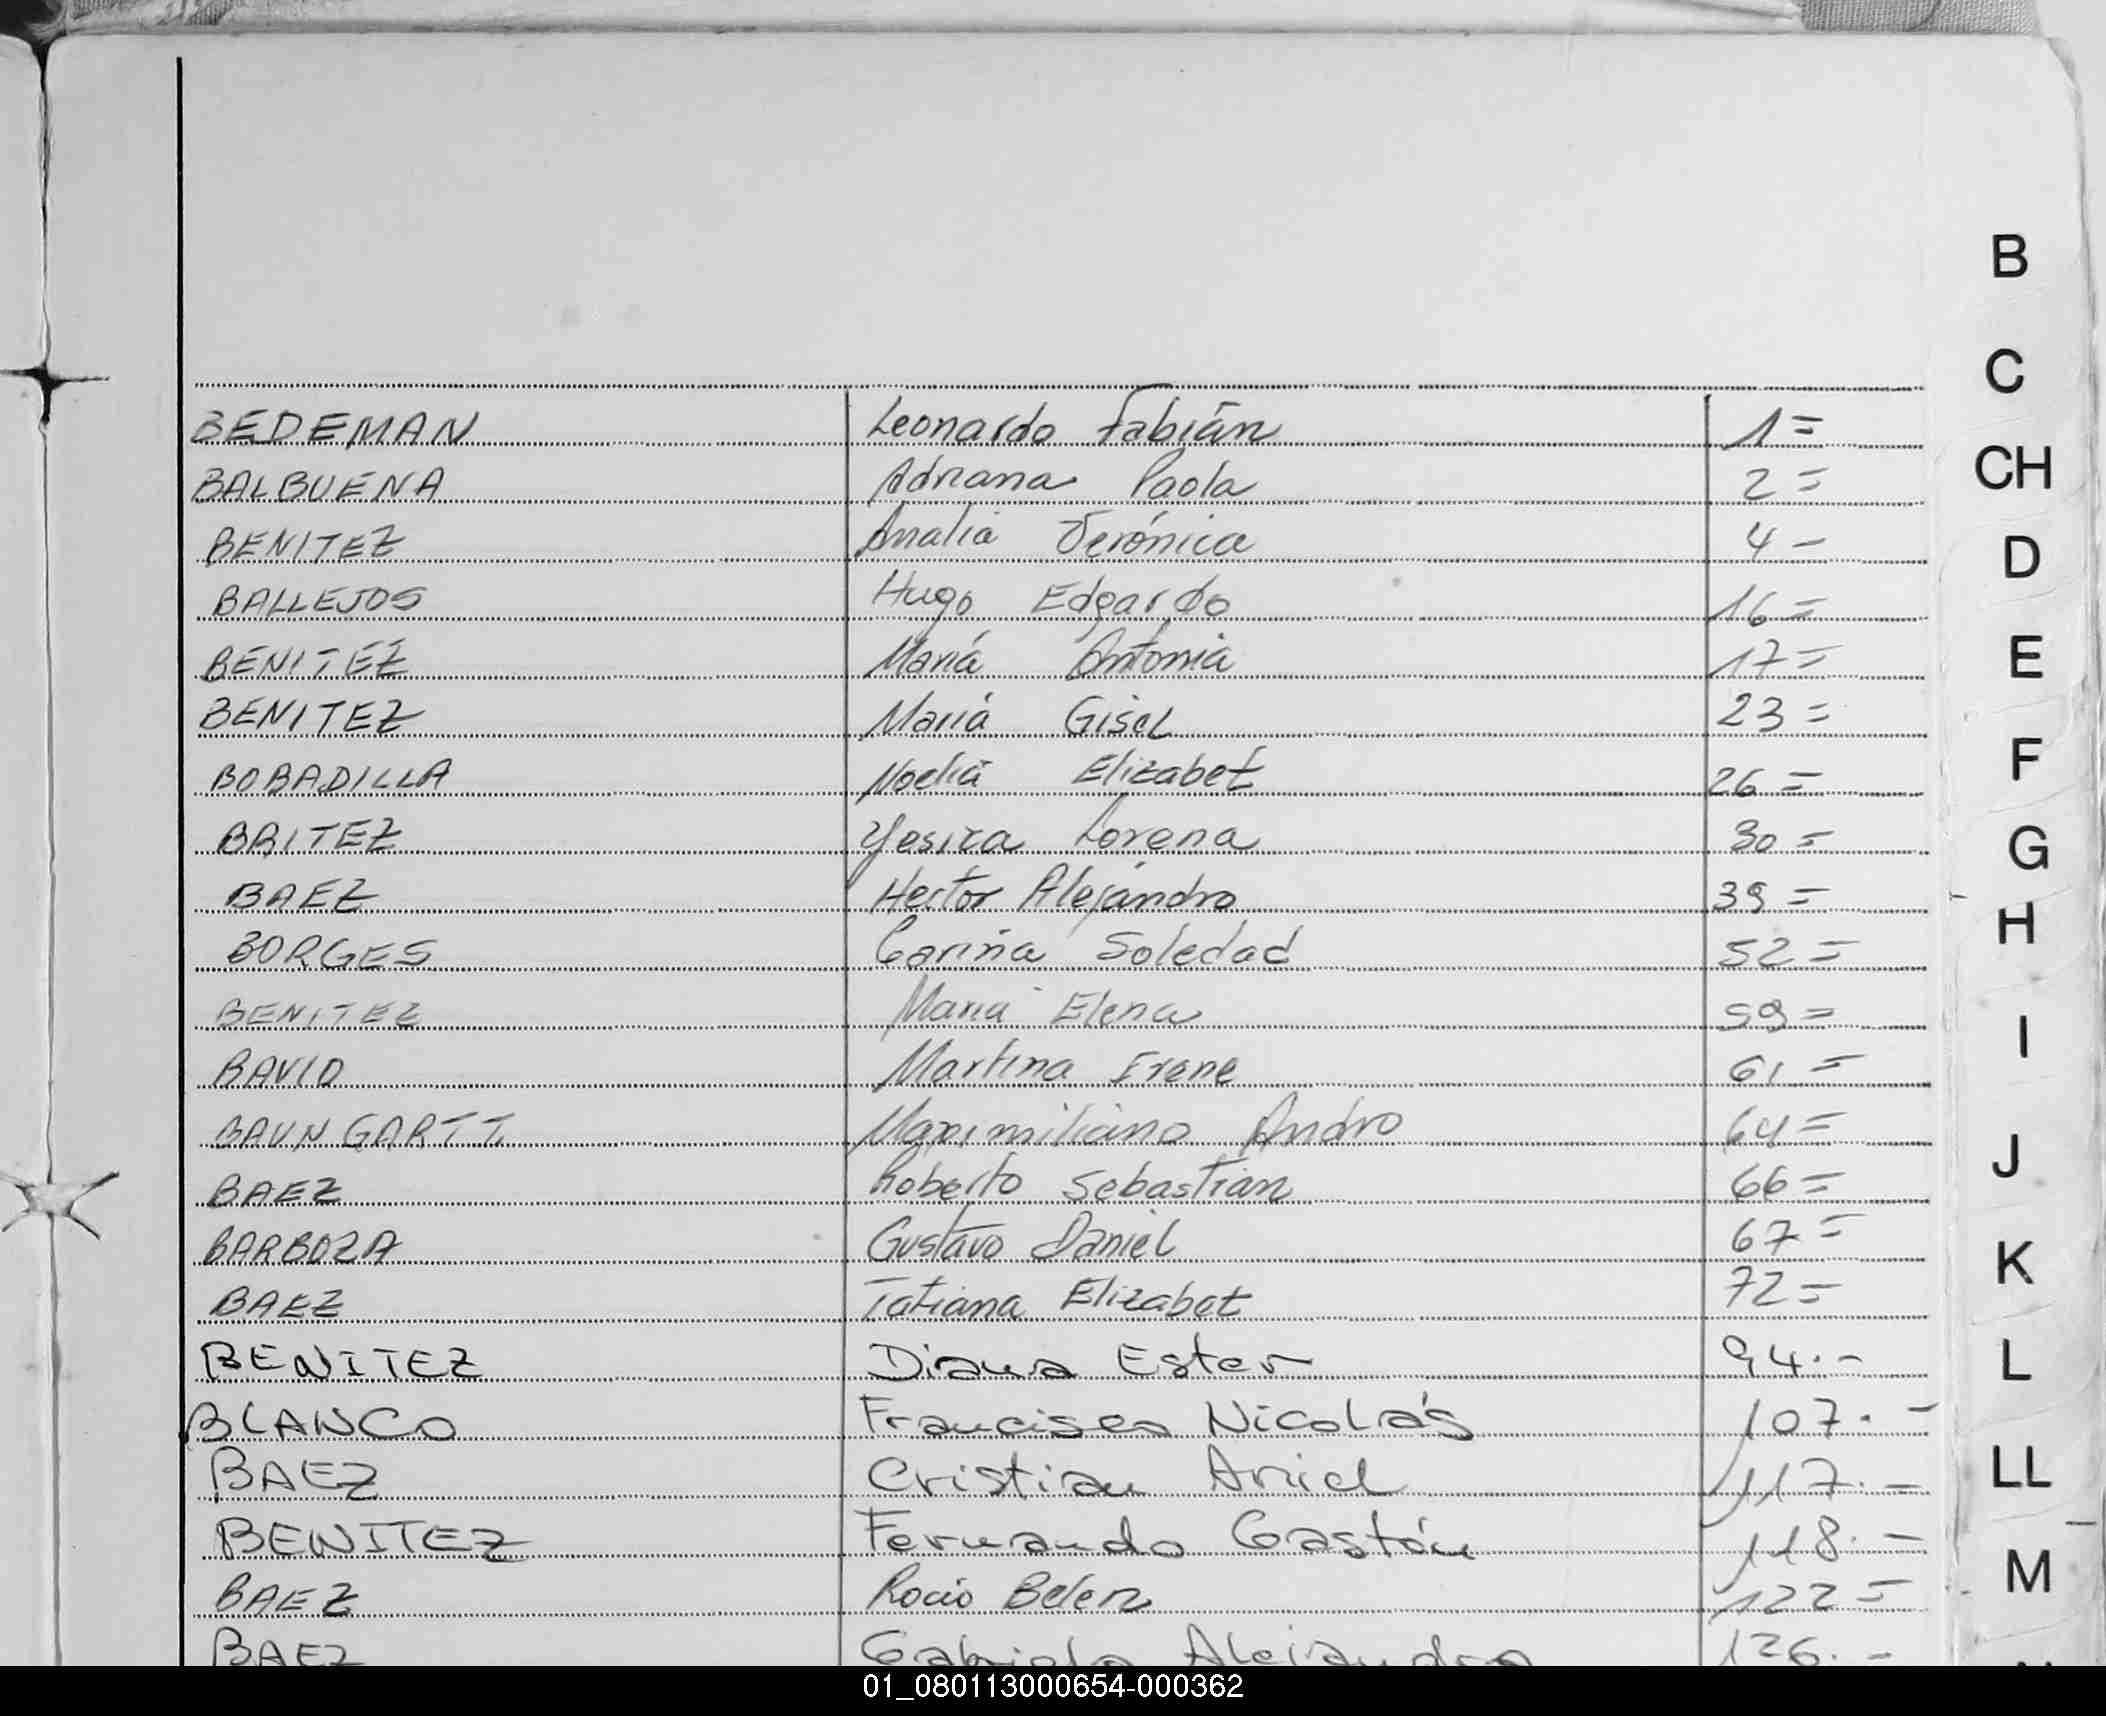 B
C
CH
D
E
F
G
H
I
J
K
L
LL
M
BEDEMAN Leonardo Fabián 1=
BALBUENA Adriana Paola 2=
BENITEZ Analia Verónica 4-
BALLEJOS Hugo Edgardo 16=
BENITEZ María Antonia 17=
BENITEZ María Gisel 23=
BOBADILLA Noelia Elizabet 26=
BRITEZ Yesica Lorena 30=
BAEZ Hector Alejandro 39=
BORGES Carina Soledad 52=
BENITEZ Maria Elena 59=
BAVIO Martina Irene 61=
BAUNGARTT Maximiliano Andro 64=
BAEZ Roberto Sebastian 66=
BARBOZA Gustavo Daniel 67=
BAEZ Tatiana Elizabet 72=
BENITEZ Diana Ester 94.-
BLANCO Francisco Nicolás 107.-
BAEZ Cristian Ariel 117.-
BENITEZ Fernando Gastón 118.-
BAEZ Rocio Belen 122=
BAEZ Gabriela Alejandra 126.-
01_080113000654-000362